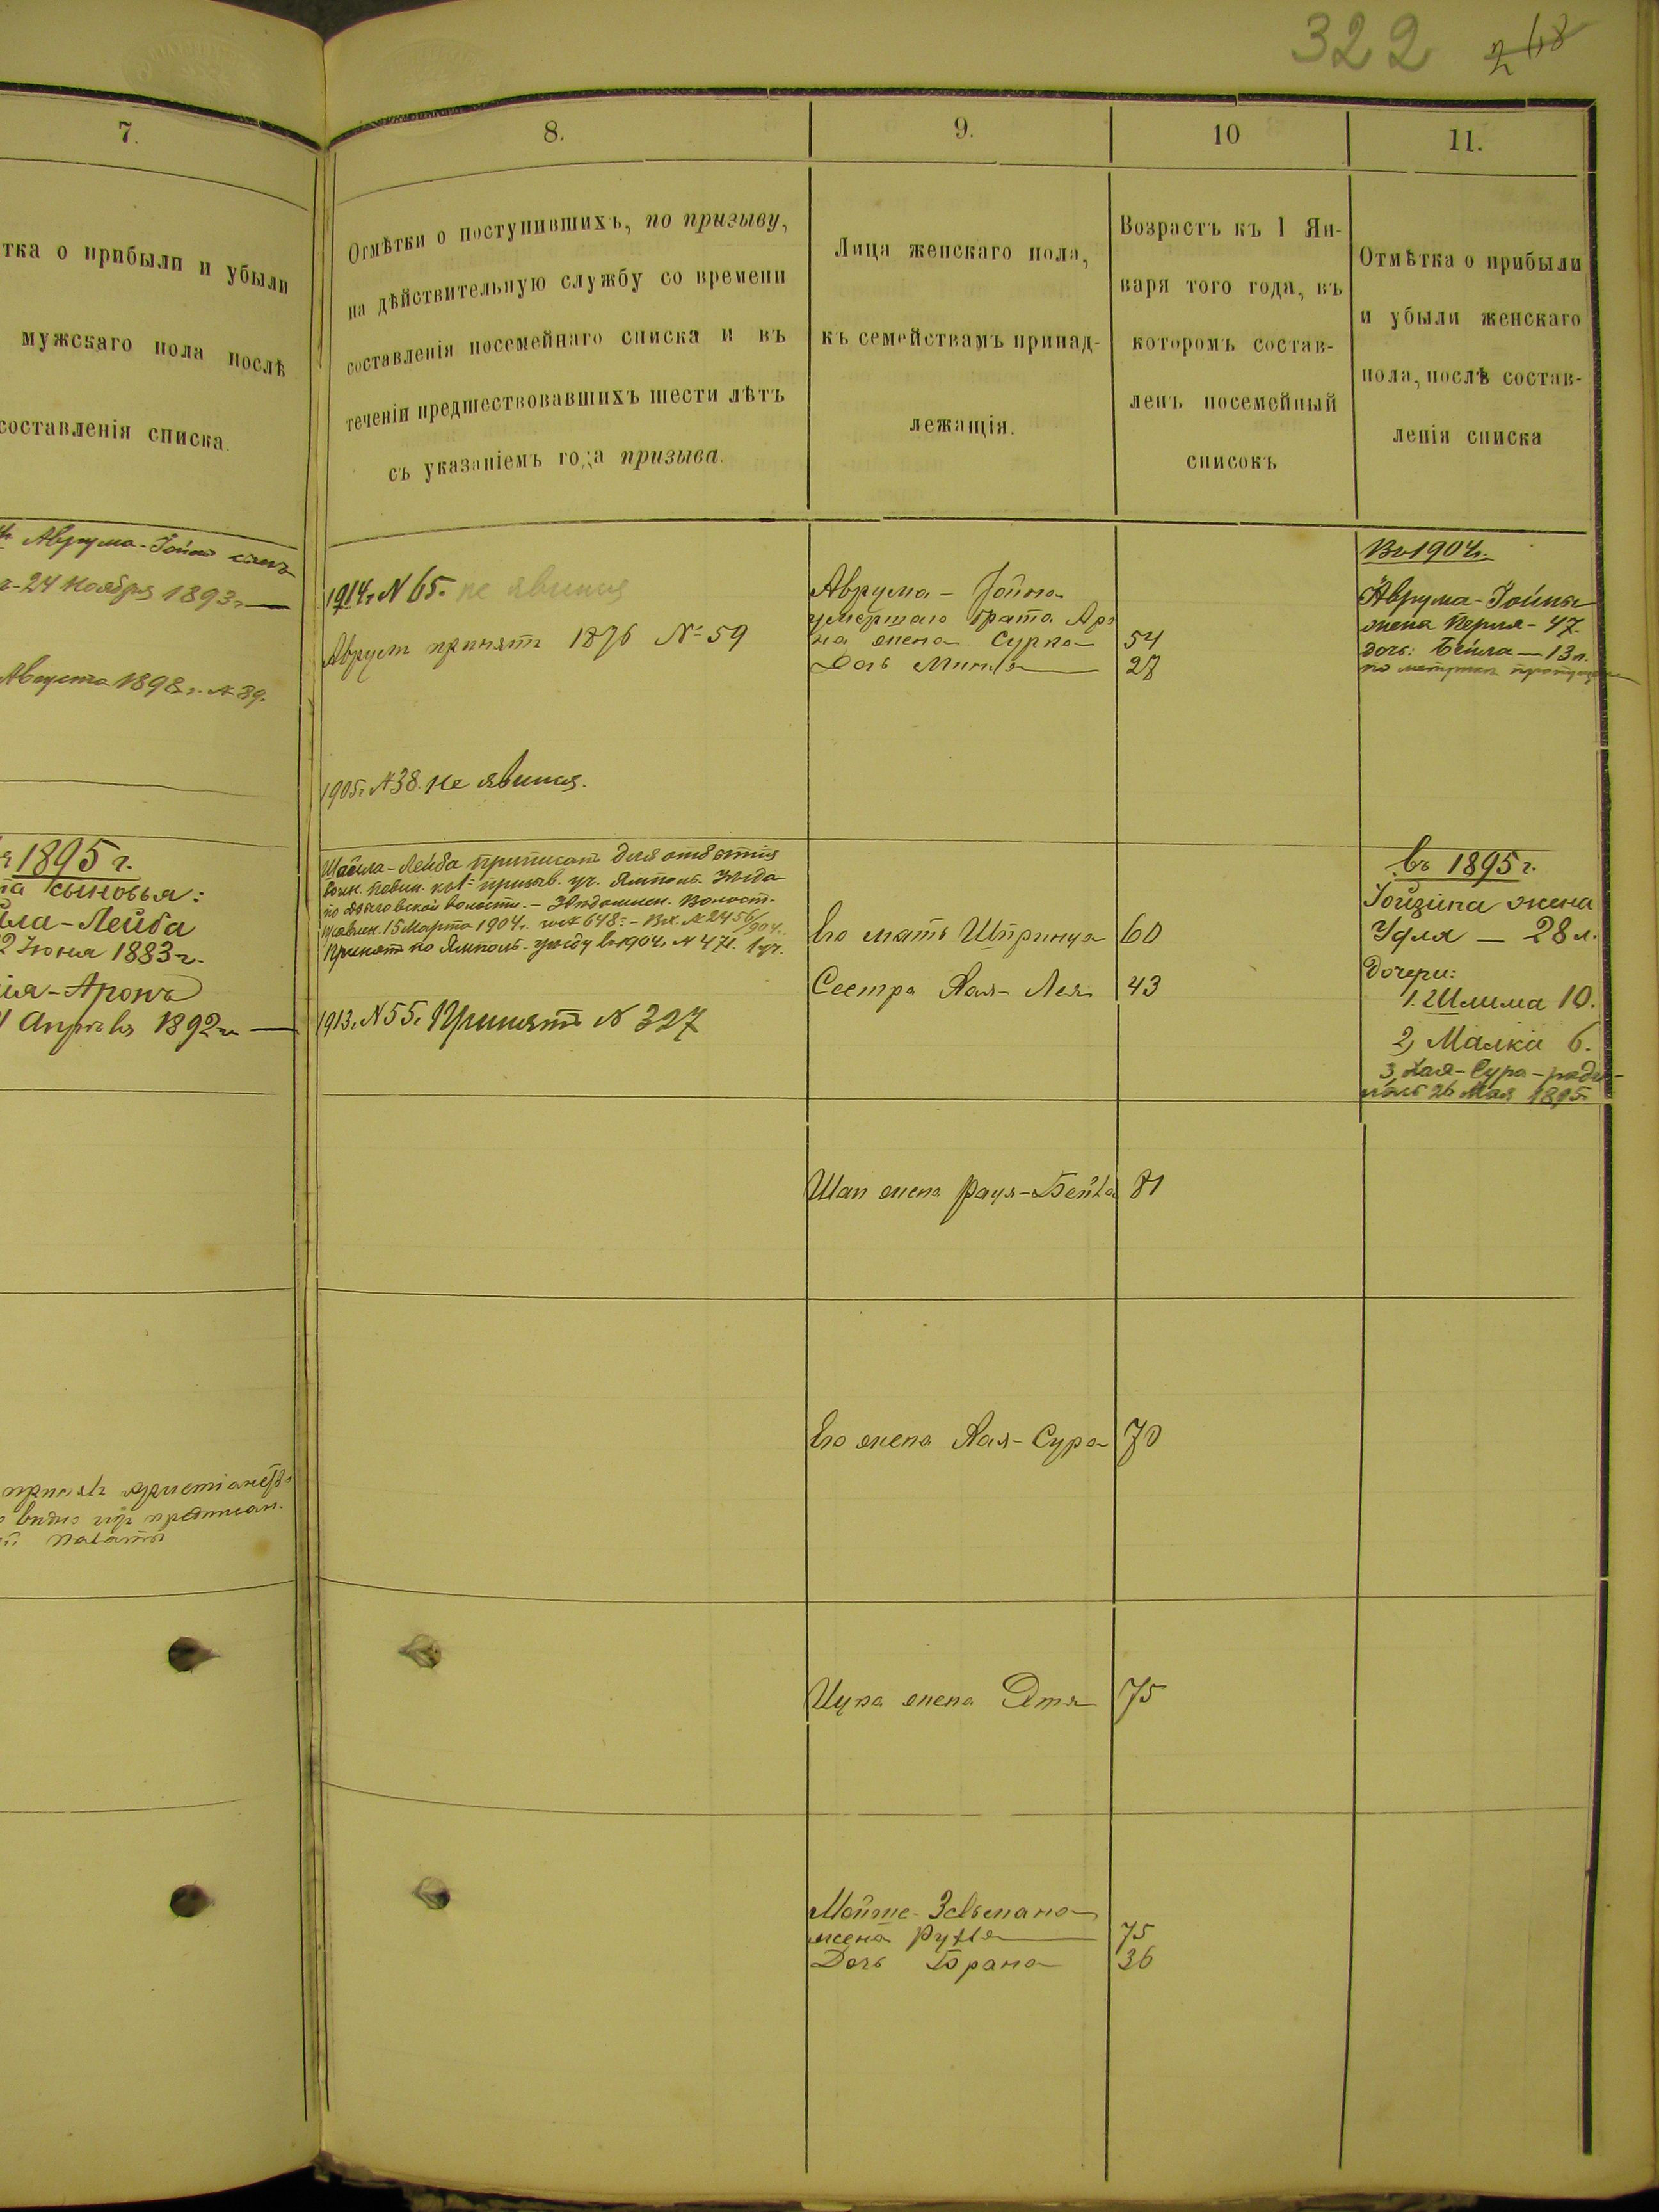 322 248
7.
8.
9.
10
11.
тка о прибыли и убыли
мужскаго пола послѣ
составленія списка.
Отмѣтки о поступившихъ, по призыву,
на дѣйствительную службу со времени
составленія посемейнаго списка и въ
теченіи предшествовавшихъ шести лѣтъ
съ указаніемъ года призыва.
Лица женскаго пола,
къ семействамъ принад-
лежащія.
Возрастъ къ 1 Ян-
варя того года, въ
которомъ состав-
ленъ посемейный
списокъ
Отмѣтка о прибыли
и убыли женскаго
пола, послѣ состав-
ленія списка
Аврума-Іойны сынъ
24 Ноября 1893 г.
Августа 1898 г. № 89.
1914 г. № 65. не явился
принятъ 1876 № 59
1905 г. № 38. Не явился.
Аврума-Іойна
умершаго брата Аро
на жена Сурка 54
Дочь 28
Въ 1904 г.
Аврума-Іойны
жена Перля - 47.
дочь: Бейла - 13 л.
по метрикѣ
1895 г.
сыновья:
ла-Лейба
2 Іюня 1883 г.
-Аронъ
Апрѣля 1892 г.
Шайла-Лейба приписанъ для отбытія
воин. повин. къ 1 призыв. уч. Ямполь. Уѣзда
по волости. - Увѣдомлен. Волост.
правлен. 15 Марта 1904 г. за № 648: - Вх. № 2456/904 г.
Принятъ по Ямполь. уѣзду въ 1904 г. № 471. 1 уч.
1913 г. № 55. Принятъ № 327
Его мать Шпринца 60
Сестра Хая-Лея 43
въ 1895 г.
жена
Удля - 28 л.
Дочери:
1. Шлима 10.
2) Малка 6.
3, Хая-Сура - роди-
лась 26 Мая 1895
жена Рация-Бейла 81
Его жена Хая-Сура 70
принялъ христіанство
видно изъ предписан.
палаты
жена Этя 75
Мойше-Зельмана
жена Рухля 75
Дочь Брана 36